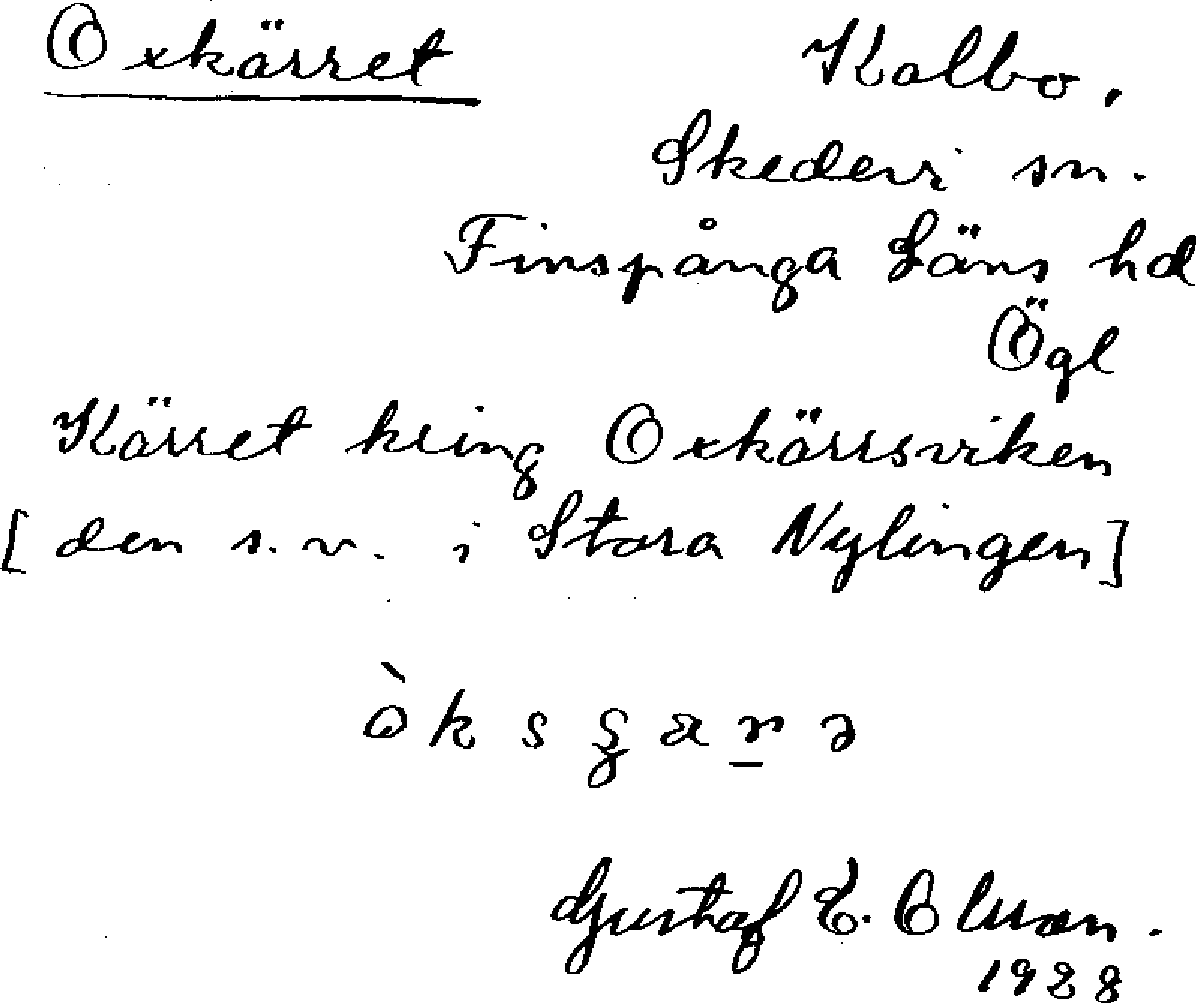 Oxkärret Kalbo,
Skedevi sn.
Finspånga Läns hd
Ögl
Kärret kring Oxkärrsviken
[den s.v. i Stora Nylingen]
Gustaf E.
1928